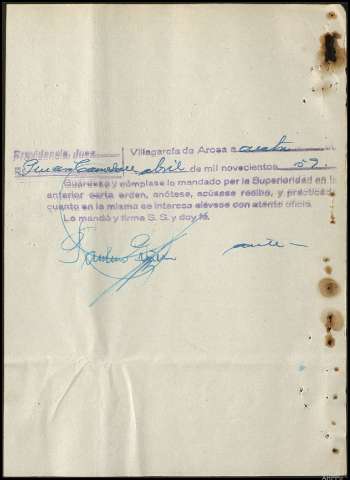 Providencia Juez Villagarcía de Arosa a cuatro
abril de mil novecientos 52.
Guárdese y cúmplase lo mandado por la Superioridad en la
anterior carta orden, anótese, acúsese recibo, y practicado
cuanto en la misma se interesa elévese con atento oficio.
Lo mandó y firma S. S. y doy fé.
ante